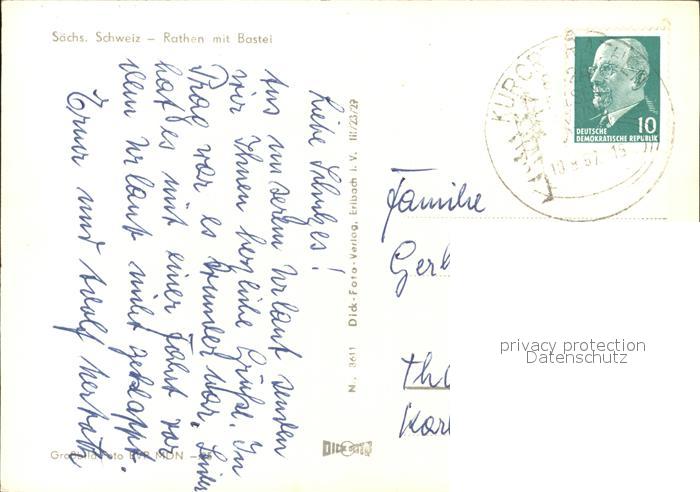 Sächs. Schweiz – Rathen mit Bastei
Liebe Schulzes!
Aus unserem Urlaub senden
wir Ihnen herzliche Grüße. In
Prag war es wunderbar. Leider
hat es mit einer Fahrt vor
dem Urlaub nicht geklappt.
Erna und Adolf
N. 3611 Dick-Foto-Verlag, Erlbach i. V. III/23/29
DICK FOTO
MDN
KURORT
DEUTSCHE
DEMOKRATISCHE REPUBLIK
10
Familie
Gerh
Kar
privacy protection
Datenschutz